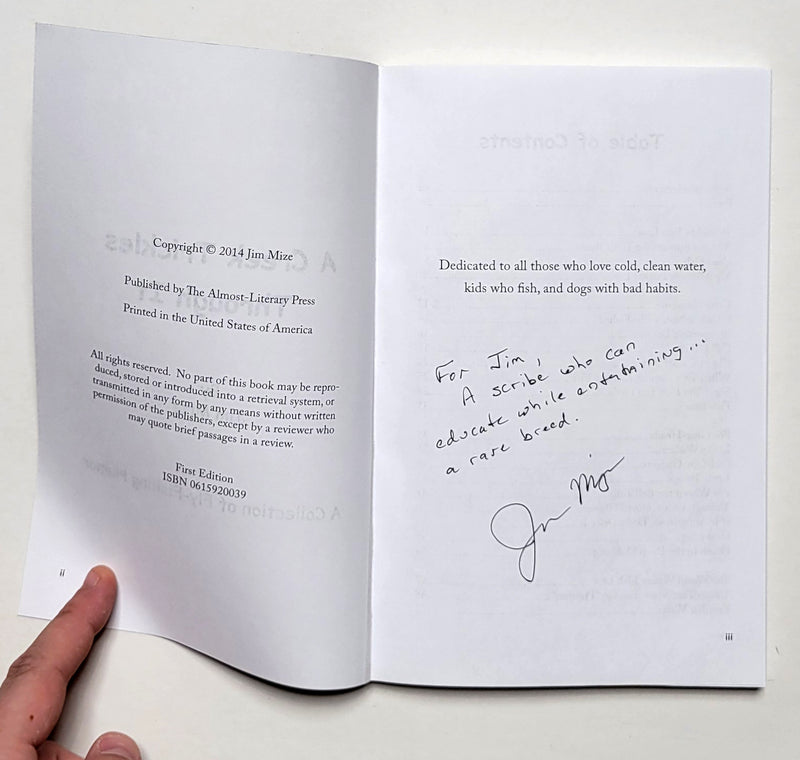 Copyright © 2014 Jim Mize
Published by The Almost-Literary Press
Printed in the United States of America
All rights reserved. No part of this book may be repro-
duced, stored or introduced into a retrieval system, or
transmitted in any form by any means without written
permission of the publishers, except by a reviewer who
may quote brief passages in a review.
First Edition
ISBN 0615920039
ii
Table of Contents
A Creek Trickles
Through It
A Collection of Fly-Fishing Humor
Dedicated to all those who love cold, clean water,
kids who fish, and dogs with bad habits.
For Jim,
A scribe who can
educate while entertaining...
a rare breed.
Jim Mize
iii